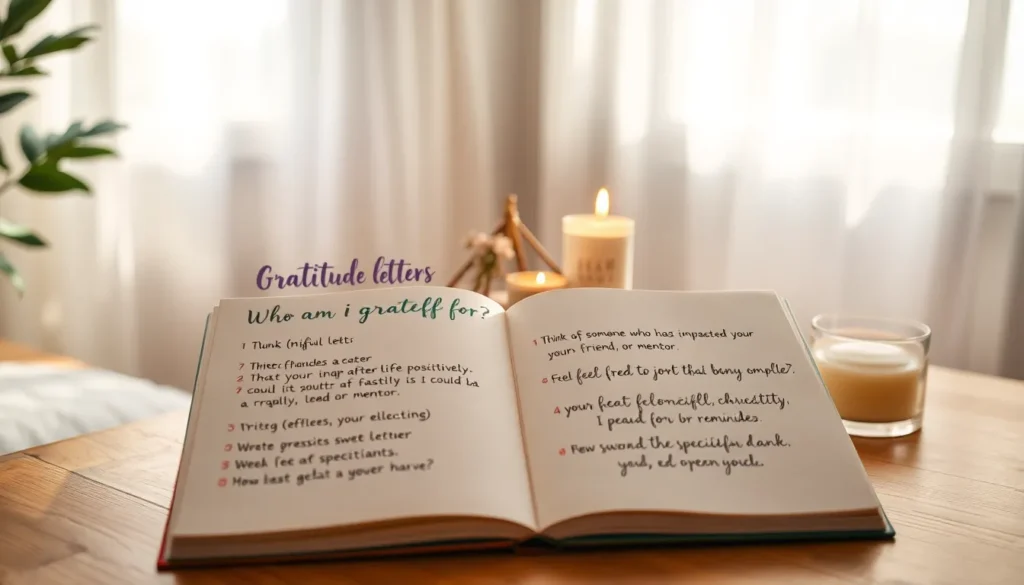 Gratitude letters
Who am i grateff for?
1 Tlunk (niful letts
7 Thterc(handes a cater
2 That your ingr after life positively.
7 coul lit soultr af fastily is I could ba
a rrqlly, lead or mentor.
3 Tritrg (efflees, your ellecting)
2 Wrate pressits swet letter
8 Week fee af specitiants.
How hest gelst a yover harve?
1 Think of someone who has impacted your
your friend, or mentor.
Feel feel fred to jort that bony omplle?.
4 your feat feloncifll, chructity,
I peaud for br reminides.
Pew sword the specilful dank.
youd, ed opern youdc.